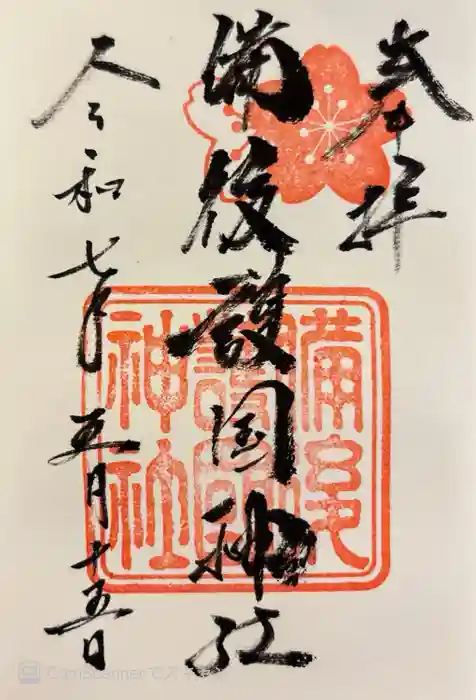 奉拝
備後護国神社
令和七年五月十五日
備後護国神社
CamScannerでスキャン